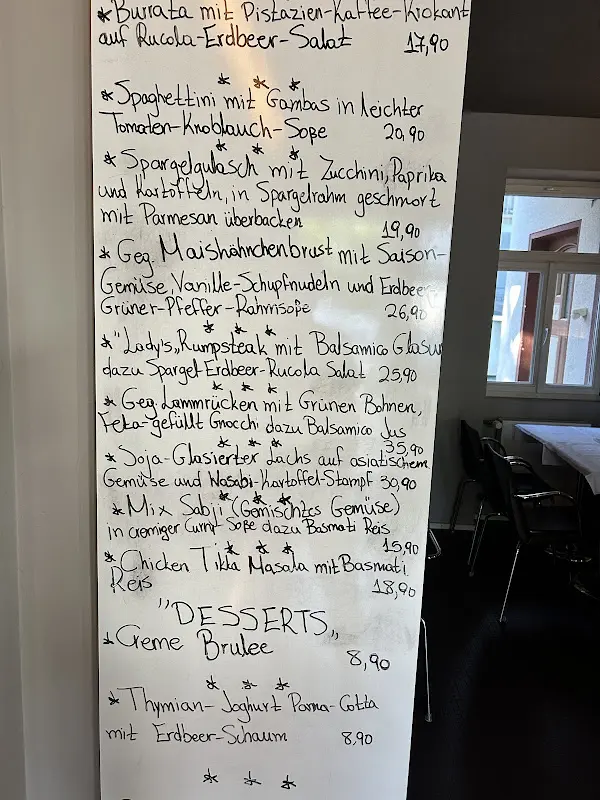 *Burrata mit Pistazien-Kaffee-Krokant
auf Rucola-Erdbeer-Salat 17,90
* * *
*Spaghettini mit Gambas in leichter
Tomaten-Knoblauch-Soße 20,90
* * *
*Spargelgulasch mit Zucchini, Paprika
und Kartoffeln, in Spargelrahm geschmort
mit Parmesan überbacken
19,90
*Geg. Maishähnchenbrust mit Saison-
Gemüse, Vanille-Schupfnudeln und Erdbeer-
Grüner-Pfeffer-Rahmsoße 26,90
* * *
*"Lady's„ Rumpsteak mit Balsamico Glasur
dazu Spargel-Erdbeer-Rucola Salat 25,90
* * *
*Geg. Lammrücken mit Grünen Bohnen,
Feta-gefüllt Gnocchi dazu Balsamico Jus
35,90
* * *
*Soja-Glasierter Lachs auf asiatischem
Gemüse und Wasabi-Kartoffel-Stampf 30,90
* * *
*Mix Sabji (Gemischtes Gemüse)
in cremiger Curry Soße dazu Basmati Reis
15,90
* * *
*Chicken Tikka Masala mit Basmati
Reis 18,90
"DESSERTS„
*Creme Brulee
8,90
* * *
*Thymian-Joghurt Panna-Cotta
mit Erdbeer-Schaum 8,90
* * *